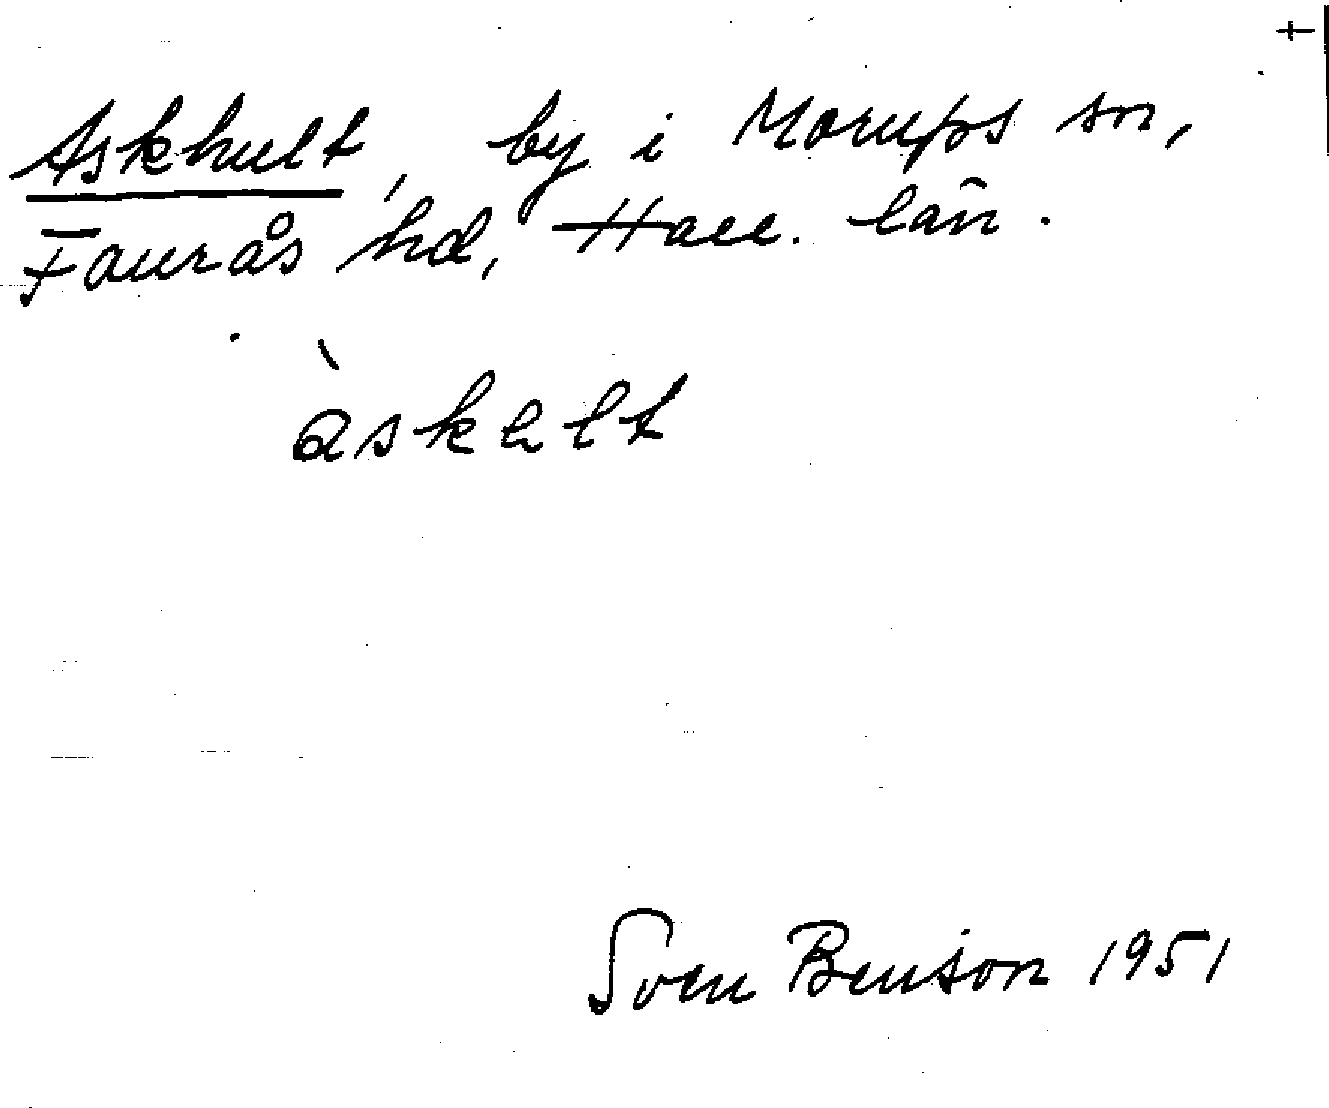 Askhult, by i Morups sn,
Faurås hd, Hall. län.
àskəlt
Sven Benson 1951